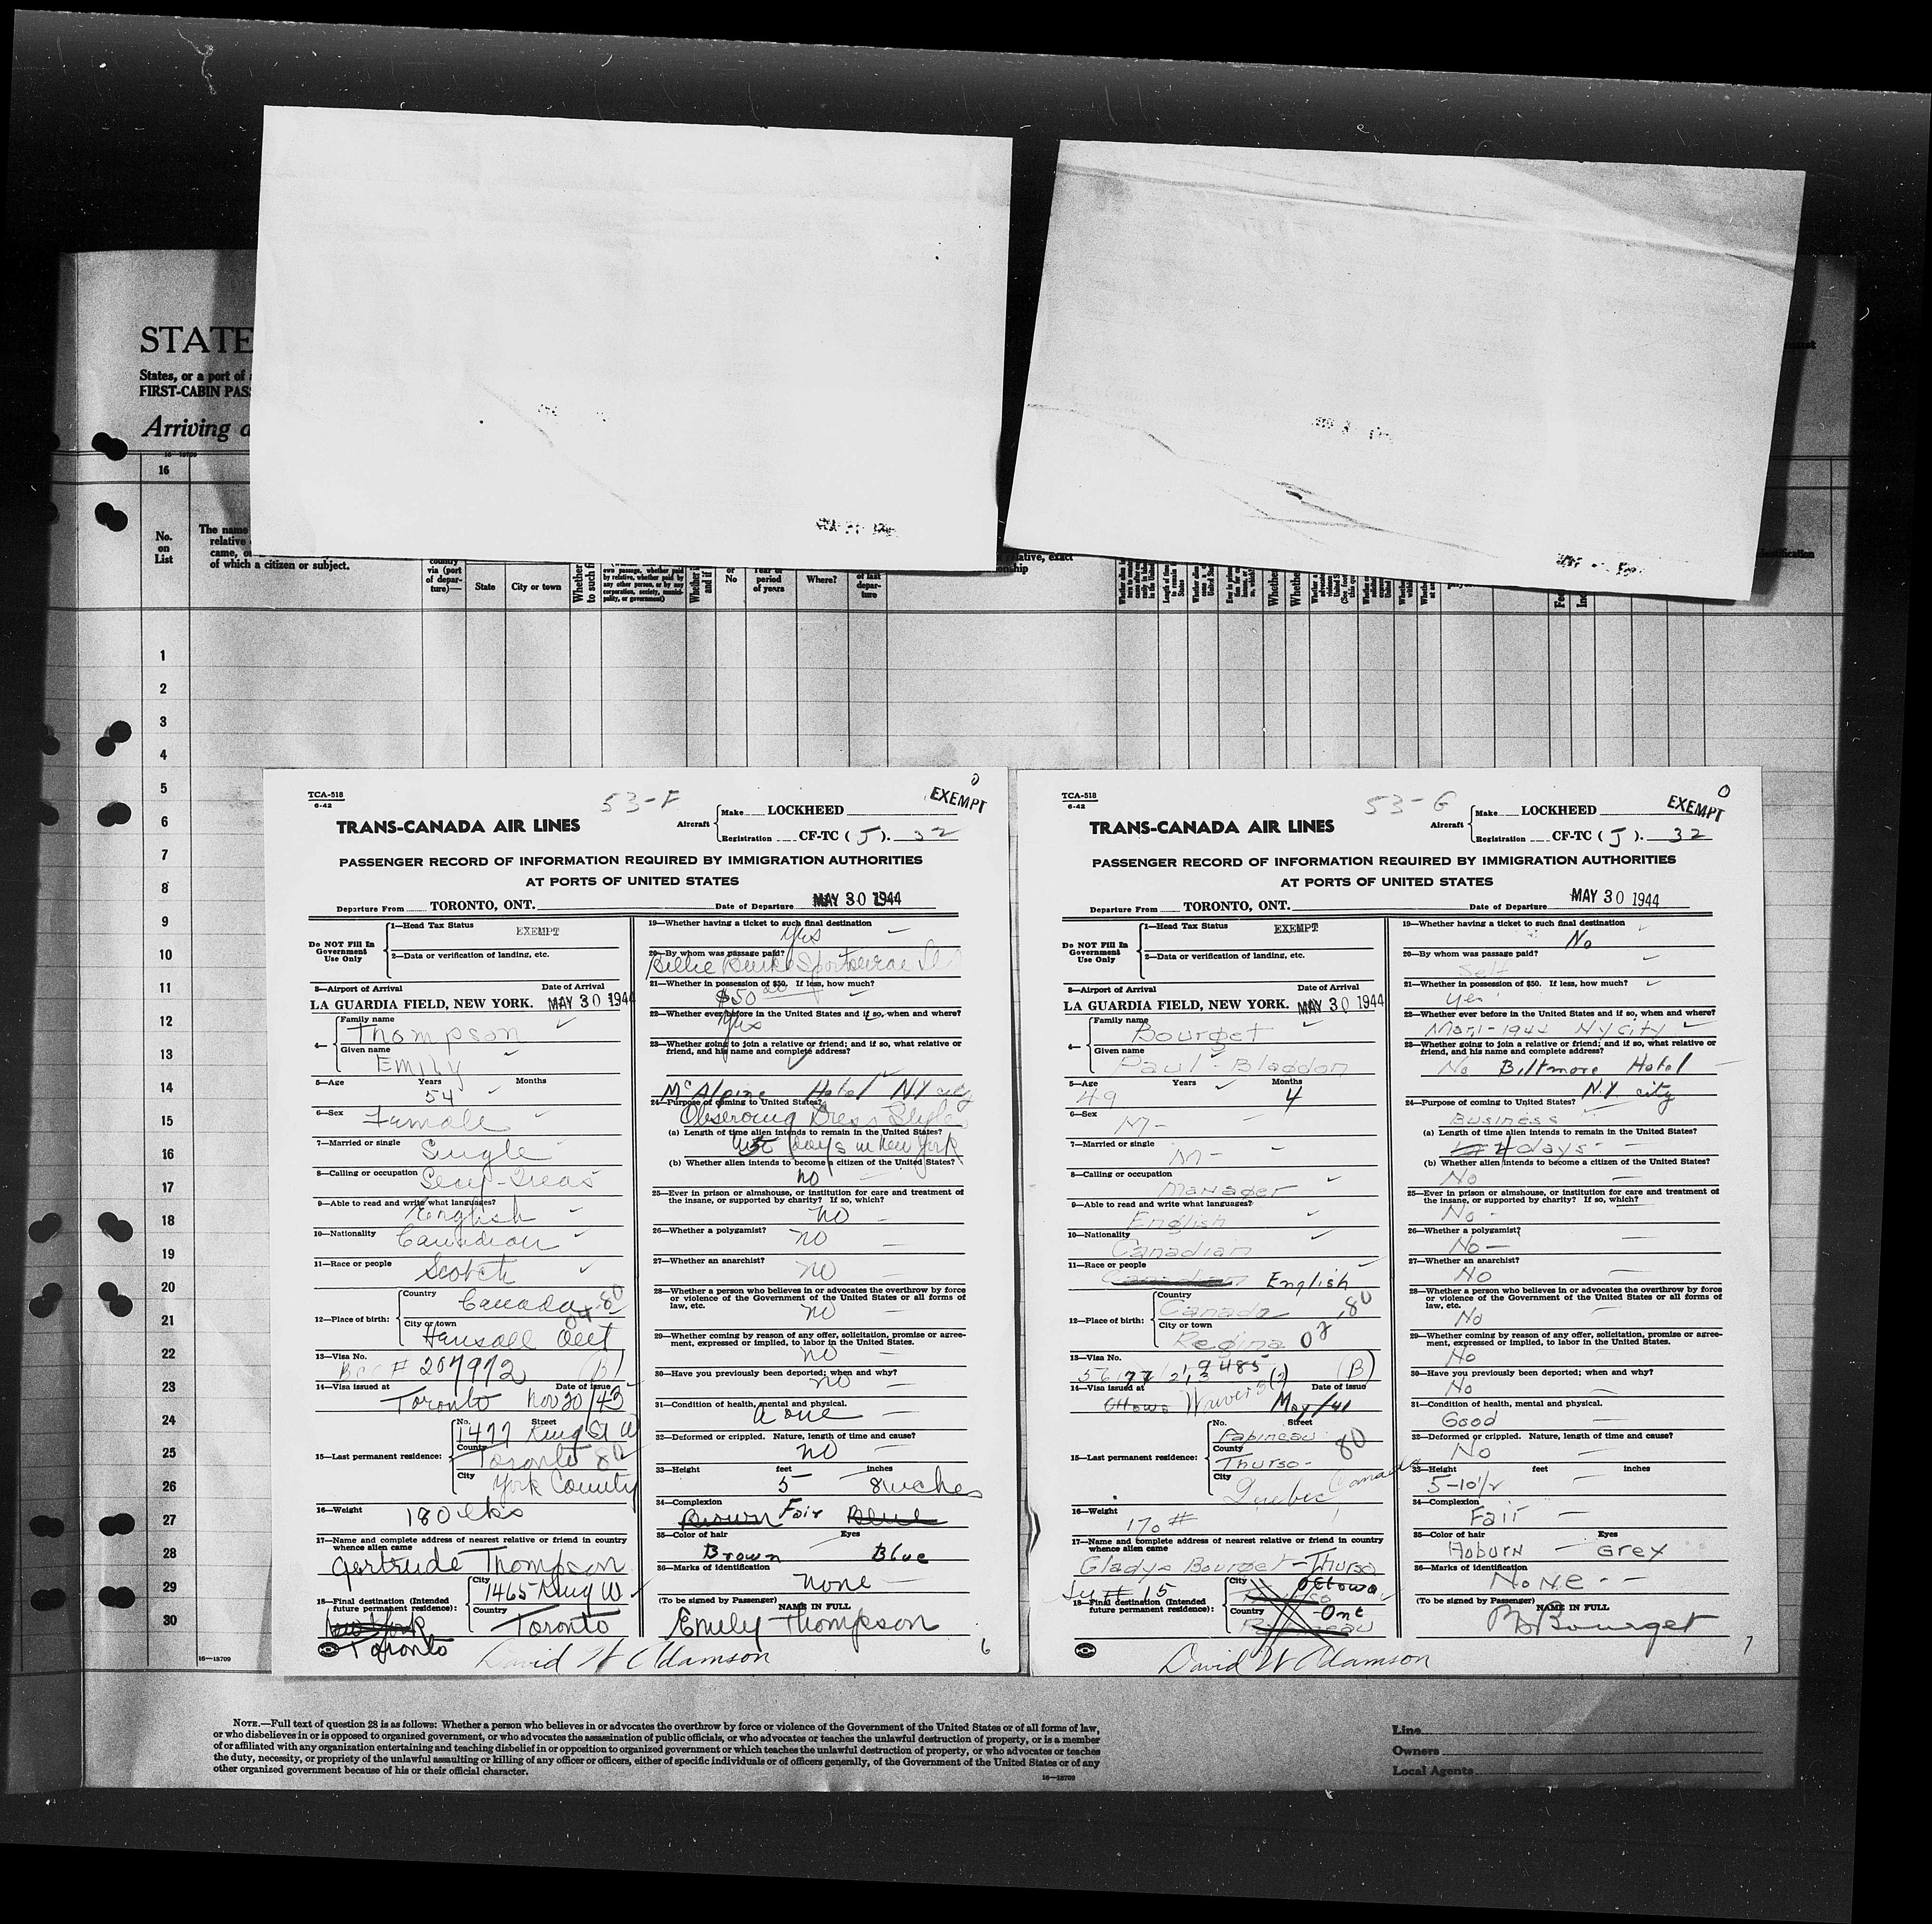 STATE
States, or a port of
FIRST-CABIN PAS
Arriving
16-18709
16
No.
on
List
The name
relative
came, o
of which a citizen or subject.
country
via (port
of depar-
ture)—
State
City or town
Whether
to such
own passage, whether paid
by relative, whether paid by
any other person, or by any
corporation, society, munici-
pality, or government)
Whether
and if
or
No
Year or
period
of years
Where?
of last
depar-
ture
relative, exact
1
2
3
4
5
6
7
8
9
10
11
12
13
14
15
16
17
18
19
20
21
22
23
24
25
26
27
28
29
30
16-18709
TCA-518
6-42
53-F
0
EXEMPT
TRANS-CANADA AIR LINES
Aircraft
Make LOCKHEED
Registration CF-TC (J). 32
PASSENGER RECORD OF INFORMATION REQUIRED BY IMMIGRATION AUTHORITIES
AT PORTS OF UNITED STATES
Departure From TORONTO, ONT. Date of Departure MAY 30 1944
Do NOT Fill In
Government
Use Only
1—Head Tax Status EXEMPT
2—Data or verification of landing, etc.
3—Airport of Arrival Date of Arrival
LA GUARDIA FIELD, NEW YORK. MAY 30 1944
4—
Family name
Thompson
Given name
Emily
5—Age Years Months
54
6—Sex
Female
7—Married or single
Single
8—Calling or occupation
Secy-Treas
9—Able to read and write what languages?
English
10—Nationality
Canadian
11—Race or people
Scotch
12—Place of birth:
Country
Canada 80
City or town
Hensall Ont
13—Visa No.
# 207972 (B)
14—Visa issued at Date of issue
Toronto Nov 20/43
15—Last permanent residence:
No. Street
1477 King St W
County
Toronto 80
City
York County
16—Weight
180 lbs
17—Name and complete address of nearest relative or friend in country
whence alien came
Gertrude Thompson
City
1465 King W
18—Final destination (Intended
future permanent residence):
Country
Toronto
New York
Toronto
19—Whether having a ticket to such final destination
Yes
20—By whom was passage paid?
Billie Burke Sportswear
21—Whether in possession of $50. If less, how much?
$50
22—Whether ever before in the United States and if so, when and where?
Yes
23—Whether going to join a relative or friend; and if so, what relative or
friend, and his name and complete address?
McAlpine Hotel NY city
24—Purpose of coming to United States?
Observing Dress Styles
(a) Length of time alien intends to remain in the United States?
5 days in New York
(b) Whether alien intends to become a citizen of the United States?
no
25—Ever in prison or almshouse, or institution for care and treatment of
the insane, or supported by charity? If so, which?
no
26—Whether a polygamist?
no
27—Whether an anarchist?
no
28—Whether a person who believes in or advocates the overthrow by force
or violence of the Government of the United States or all forms of
law, etc.
no
29—Whether coming by reason of any offer, solicitation, promise or agree-
ment, expressed or implied, to labor in the United States.
no
30—Have you previously been deported; when and why?
no
31—Condition of health, mental and physical.
A one
32—Deformed or crippled. Nature, length of time and cause?
no
33—Height feet inches
5 8 inches
34—Complexion
Brown Fair Blue
35—Color of hair Eyes
Brown Blue
36—Marks of identification
none
(To be signed by Passenger) NAME IN FULL
Emily Thompson
David W Adamson
6
TCA-518
6-42
53-G
0
EXEMPT
TRANS-CANADA AIR LINES
Aircraft
Make LOCKHEED
Registration CF-TC (J). 32
PASSENGER RECORD OF INFORMATION REQUIRED BY IMMIGRATION AUTHORITIES
AT PORTS OF UNITED STATES
Departure From TORONTO, ONT. Date of Departure MAY 30 1944
Do NOT Fill In
Government
Use Only
1—Head Tax Status EXEMPT
2—Data or verification of landing, etc.
3—Airport of Arrival Date of Arrival
LA GUARDIA FIELD, NEW YORK. MAY 30 1944
4—
Family name
Bourget
Given name
Paul-Blagdon
5—Age Years Months
49 4
6—Sex
M-
7—Married or single
M-
8—Calling or occupation
Manager
9—Able to read and write what languages?
English
10—Nationality
Canadian
11—Race or people
Canadian English
12—Place of birth:
Country
Canada 80
City or town
Regina 07
13—Visa No.
(B)
14—Visa issued at Date of issue
Ottawa Waiver May/41
15—Last permanent residence:
No. Street
Papineau
County
Thurso- 80
City
Quebec Canada
16—Weight
170 #
17—Name and complete address of nearest relative or friend in country
whence alien came
Gladys Bourget-Thurso
City
Ottowa
18—Final destination (Intended
future permanent residence):
Country
Ont
19—Whether having a ticket to such final destination
No
20—By whom was passage paid?
Self
21—Whether in possession of $50. If less, how much?
Yes
22—Whether ever before in the United States and if so, when and where?
Mar 1-1944 NY City
23—Whether going to join a relative or friend; and if so, what relative or
friend, and his name and complete address?
No Biltmore Hotel
N.Y. city
24—Purpose of coming to United States?
Business
(a) Length of time alien intends to remain in the United States?
4 days-
(b) Whether alien intends to become a citizen of the United States?
No
25—Ever in prison or almshouse, or institution for care and treatment of
the insane, or supported by charity? If so, which?
No-
26—Whether a polygamist?
No-
27—Whether an anarchist?
No
28—Whether a person who believes in or advocates the overthrow by force
or violence of the Government of the United States or all forms of
law, etc.
No
29—Whether coming by reason of any offer, solicitation, promise or agree-
ment, expressed or implied, to labor in the United States.
No
30—Have you previously been deported; when and why?
No
31—Condition of health, mental and physical.
Good
32—Deformed or crippled. Nature, length of time and cause?
No
33—Height feet inches
5-10½
34—Complexion
Fair
35—Color of hair Eyes
Auburn Grey
36—Marks of identification
None--
(To be signed by Passenger) NAME IN FULL
Bourget
David W Adamson
7
NOTE.—Full text of question 28 is as follows: Whether a person who believes in or advocates the overthrow by force or violence of the Government of the United States or of all forms of law,
or who disbelieves in or is opposed to organized government, or who advocates the assassination of public officials, or who advocates or teaches the unlawful destruction of property, or is a member
of or affiliated with any organization entertaining and teaching disbelief in or opposition to organized government or which teaches the unlawful destruction of property, or who advocates or teaches
the duty, necessity, or propriety of the unlawful assaulting or killing of any officer or officers, either of specific individuals or of officers generally, of the Government of the United States or of any
other organized government because of his or their official character.
16-18709
Line
Owners
Local Agents